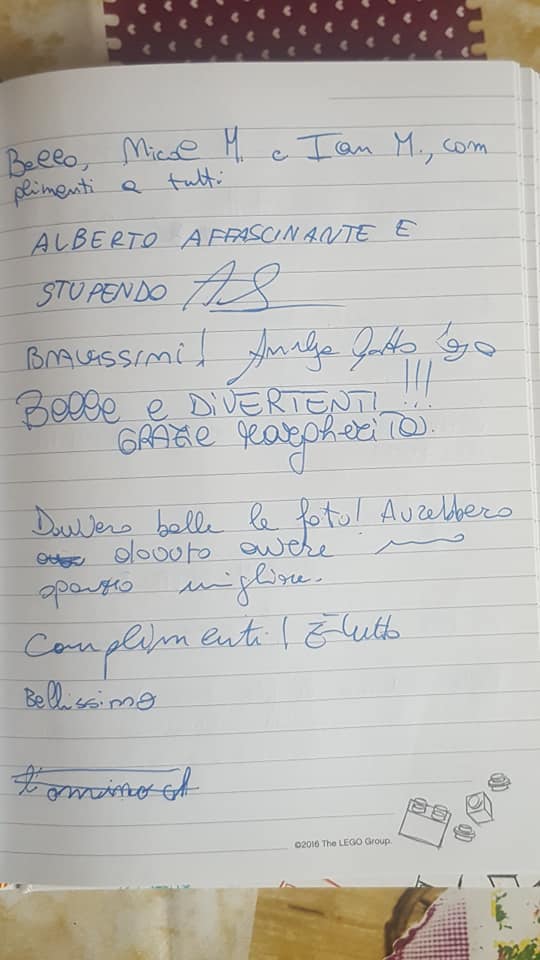 Bello, Micol M. e Ian M., com
plimenti a tutti
ALBERTO AFFASCINANTE E
STUPENDO AS
BRAVISSIMI!
Belle e DIVERTENTI!!!
GRAZIE Margherita.
Davvero belle le foto! Avrebbero
dovuto avere
spazio migliore.
Complimenti! È tutto
Bellissimo
©2016 The LEGO Group.